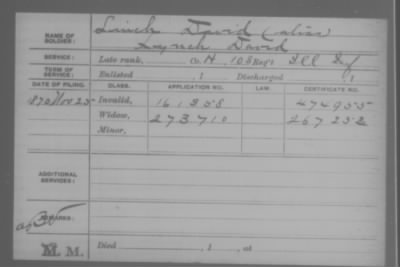 NAME OF SOLDIER: Linch David (alias
Lynch David
SERVICE: Late rank, Co. H, 108 Reg't Ill Inf
TERM OF SERVICE: Enlisted , 1 Discharged , 1
DATE OF FILING. CLASS. APPLICATION NO. LAW. CERTIFICATE NO.
1870 Nov 25 Invalid, 161358 474955
Widow, 273710 267252
Minor,
ADDITIONAL SERVICES:
REMARKS:
M. Died , 1 , at